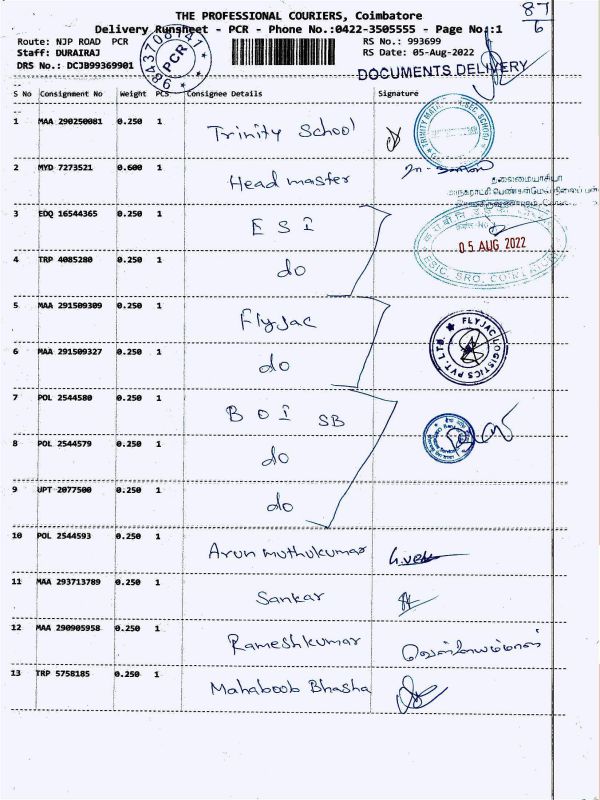 THE PROFESSIONAL COURIERS, Coimbatore
87
6
Delivery Runsheet - PCR - Phone No.:0422-3505555 - Page No.:1
Route: NJP ROAD PCR
RS No.: 993699
Staff: DURAIRAJ
RS Date: 05-Aug-2022
DRS No.: DCJB99369901
PCR
DOCUMENTS DELIVERY
S No Consignment No Weight PCS Consignee Details Signature
1 MAA 290250081 0.250 1 Trinity School
2 MYD 7273521 0.600 1 Head master
தலைமையாசிரியர்
3 EDQ 16544365 0.250 1 E S I
05 AUG 2022
4 TRP 4085280 0.250 1 do
ESIC, SRO, COIMBATORE
5 MAA 291509309 0.250 1 Flyjac
FLYJAC LOGISTICS PVT. LTD.
6 MAA 291509327 0.250 1 do
7 POL 2544580 0.250 1 B O I SB
8 POL 2544579 0.250 1 do
9 UPT 2077500 0.250 1 do
10 POL 2544593 0.250 1 Arun muthukumar
11 MAA 293713789 0.250 1 Sankar
12 MAA 290905958 0.250 1 Rameshkumar
13 TRP 5758185 0.250 1 Mahaboob Bhasha